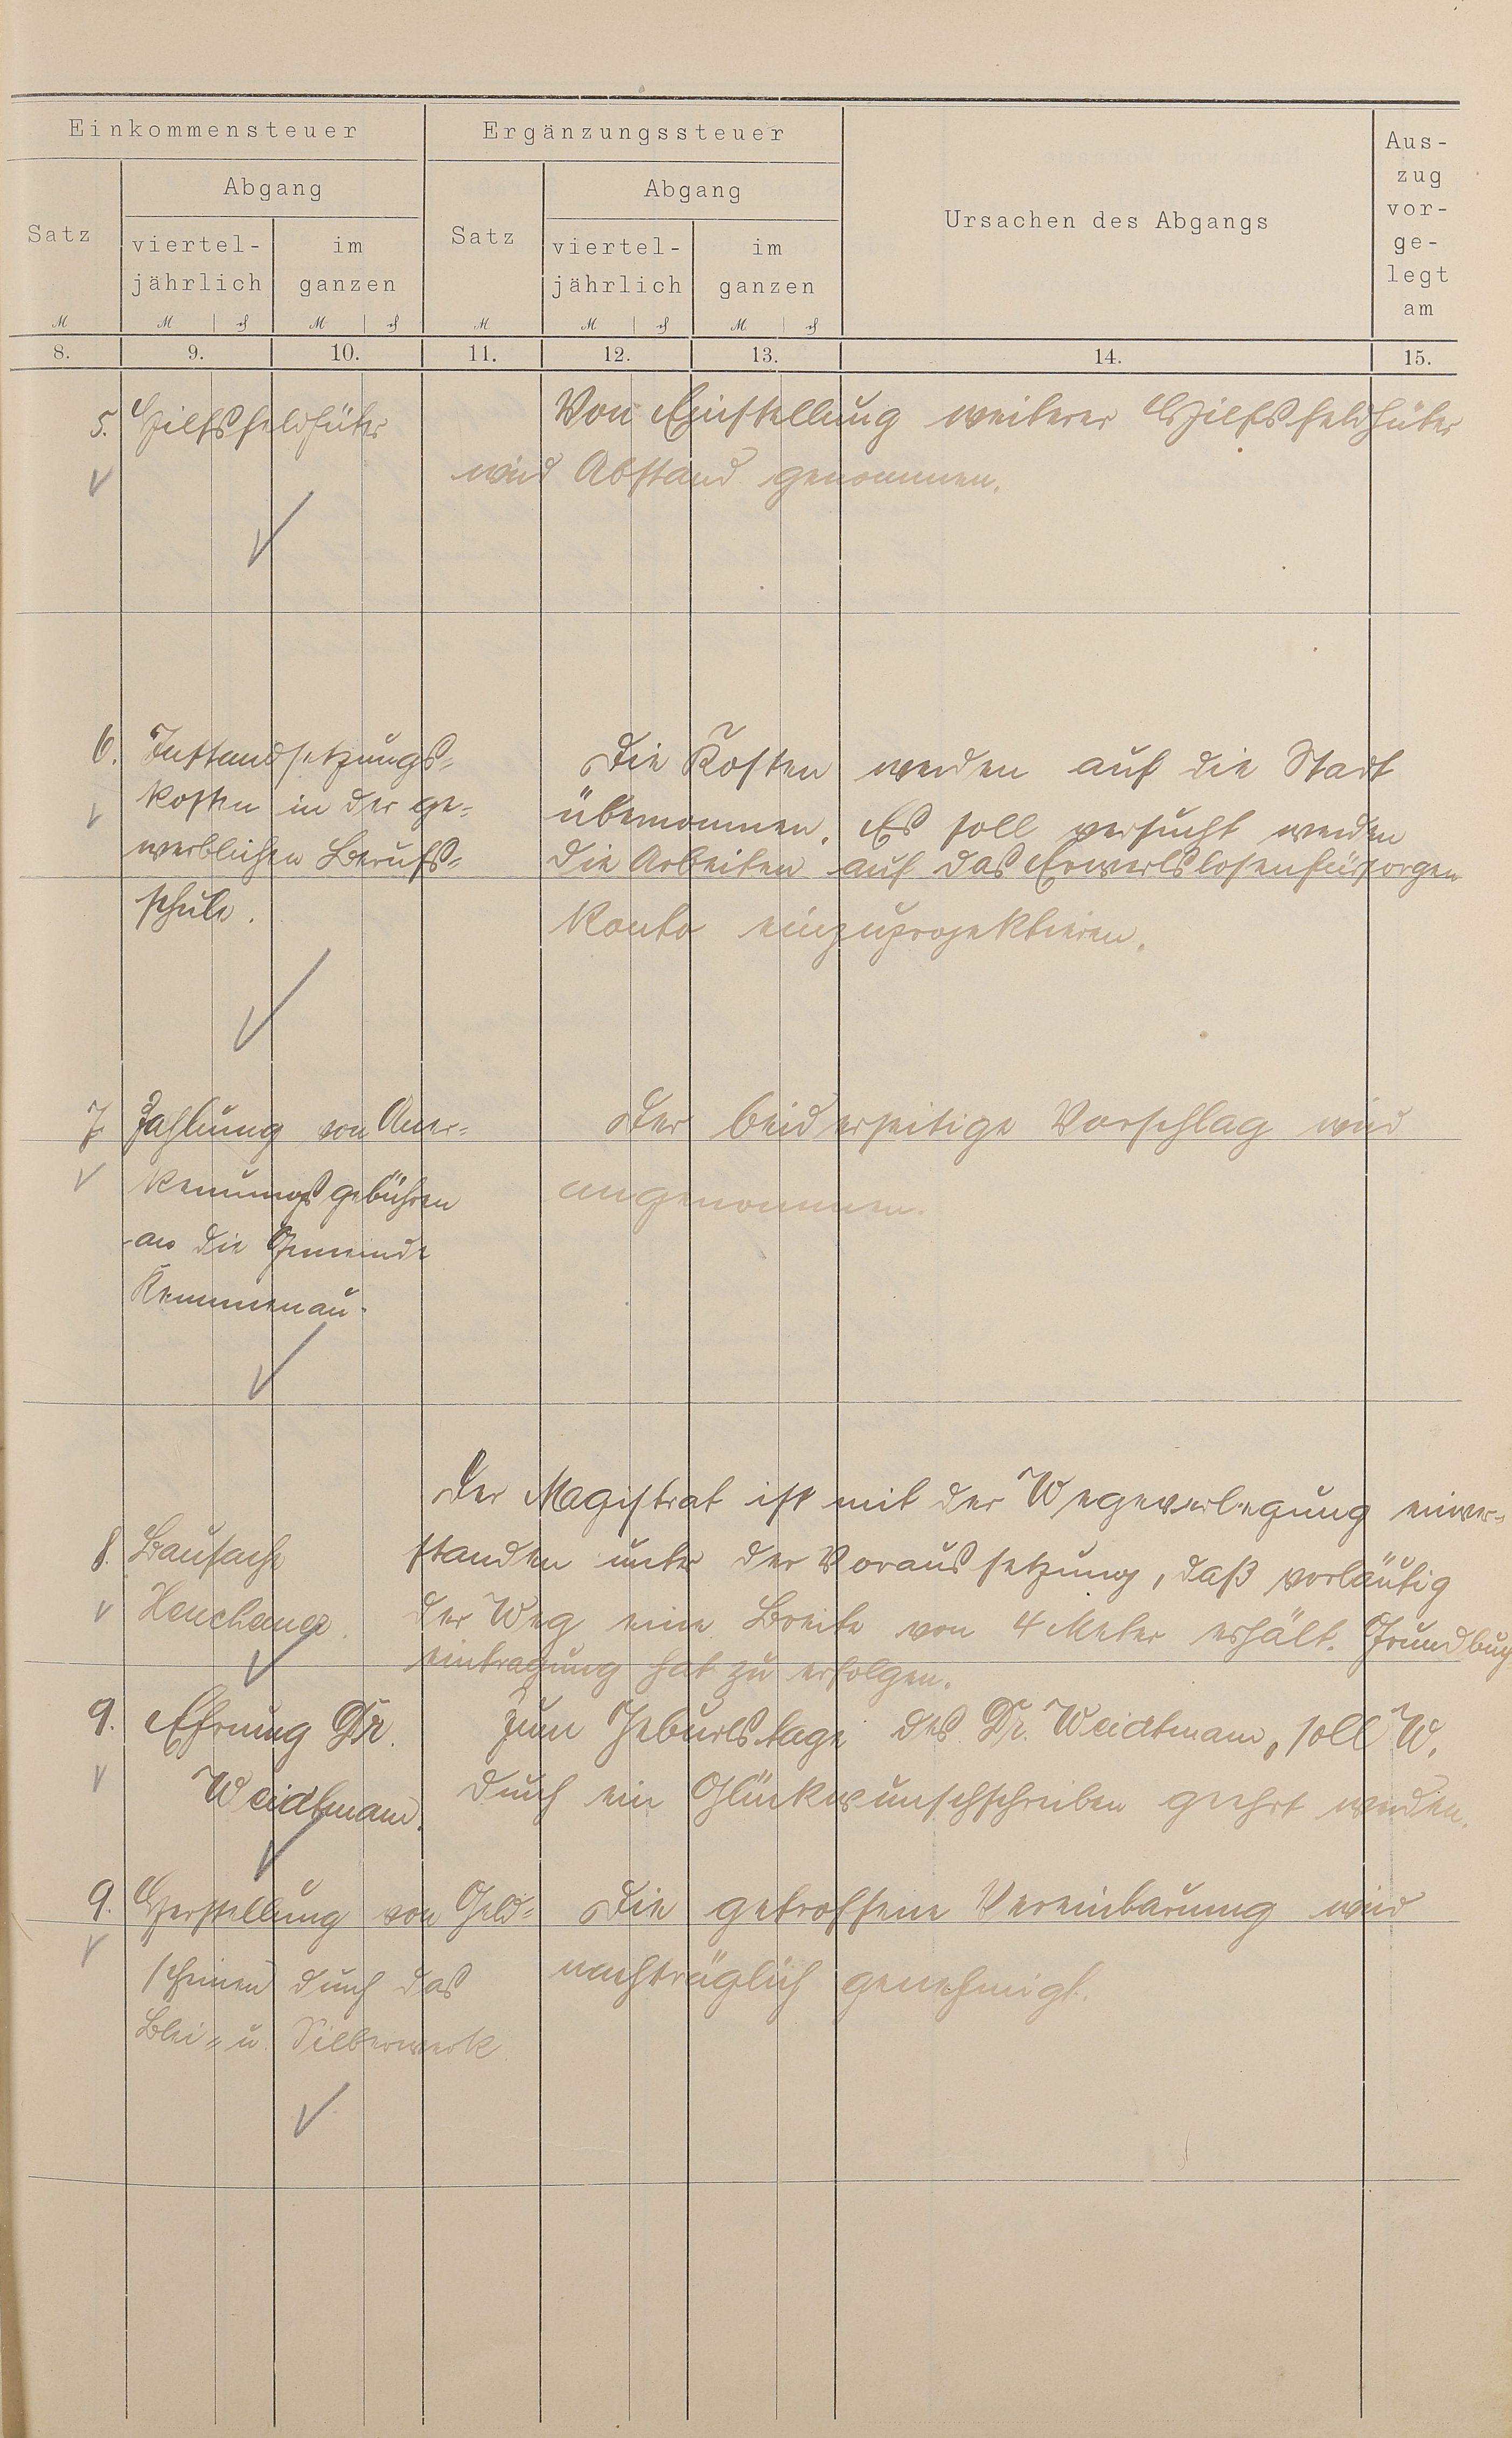 Einkommensteuer
Ergänzungssteuer
Ursachen des Abgangs
Aus-
zug
vor-
ge-
legt
am
Satz
Abgang
viertel-
jährlich
im
ganzen
Satz
Abgang
viertel-
jährlich
im
ganzen
8. 9. 10. 11. 12. 13. 14. 15.
5. Hilfsfeldhüter
Von Einstellung weiterer Hilfsfeldhüter
wird Abstand genommen.
6. Instandsetzungs-
kosten in der ge-
werblichen Berufs-
schule.
Die Kosten werden auf die Stadt
übernommen. Es soll versucht werden
die Arbeiten auf das Erwerbslosenfürsorgen
Konto einzuprojektieren.
7. Zahlung von Aner-
kennungsgebühren
an die Gemeinde
Kemmenau.
Der beiderseitige Vorschlag wird
angenommen.
8. Bausache
Der Magistrat ist mit der Wegeverlegung einver-
standen unter der Voraussetzung, daß vorläufig
der Weg eine Breite von 4 Meter erhält. Grundbuch
eintragung hat zu erfolgen.
9. Ehrung Dr.
Weidtmann.
Zum Geburtstage des Dr. Weidtmann, soll W.
durch ein Glückwunschschreiben geehrt werden.
9. Herstellung von Geld-
scheinen durch das
Blei- u. Silberwerk.
Die getroffene Vereinbarung wird
nachträglich genehmigt.